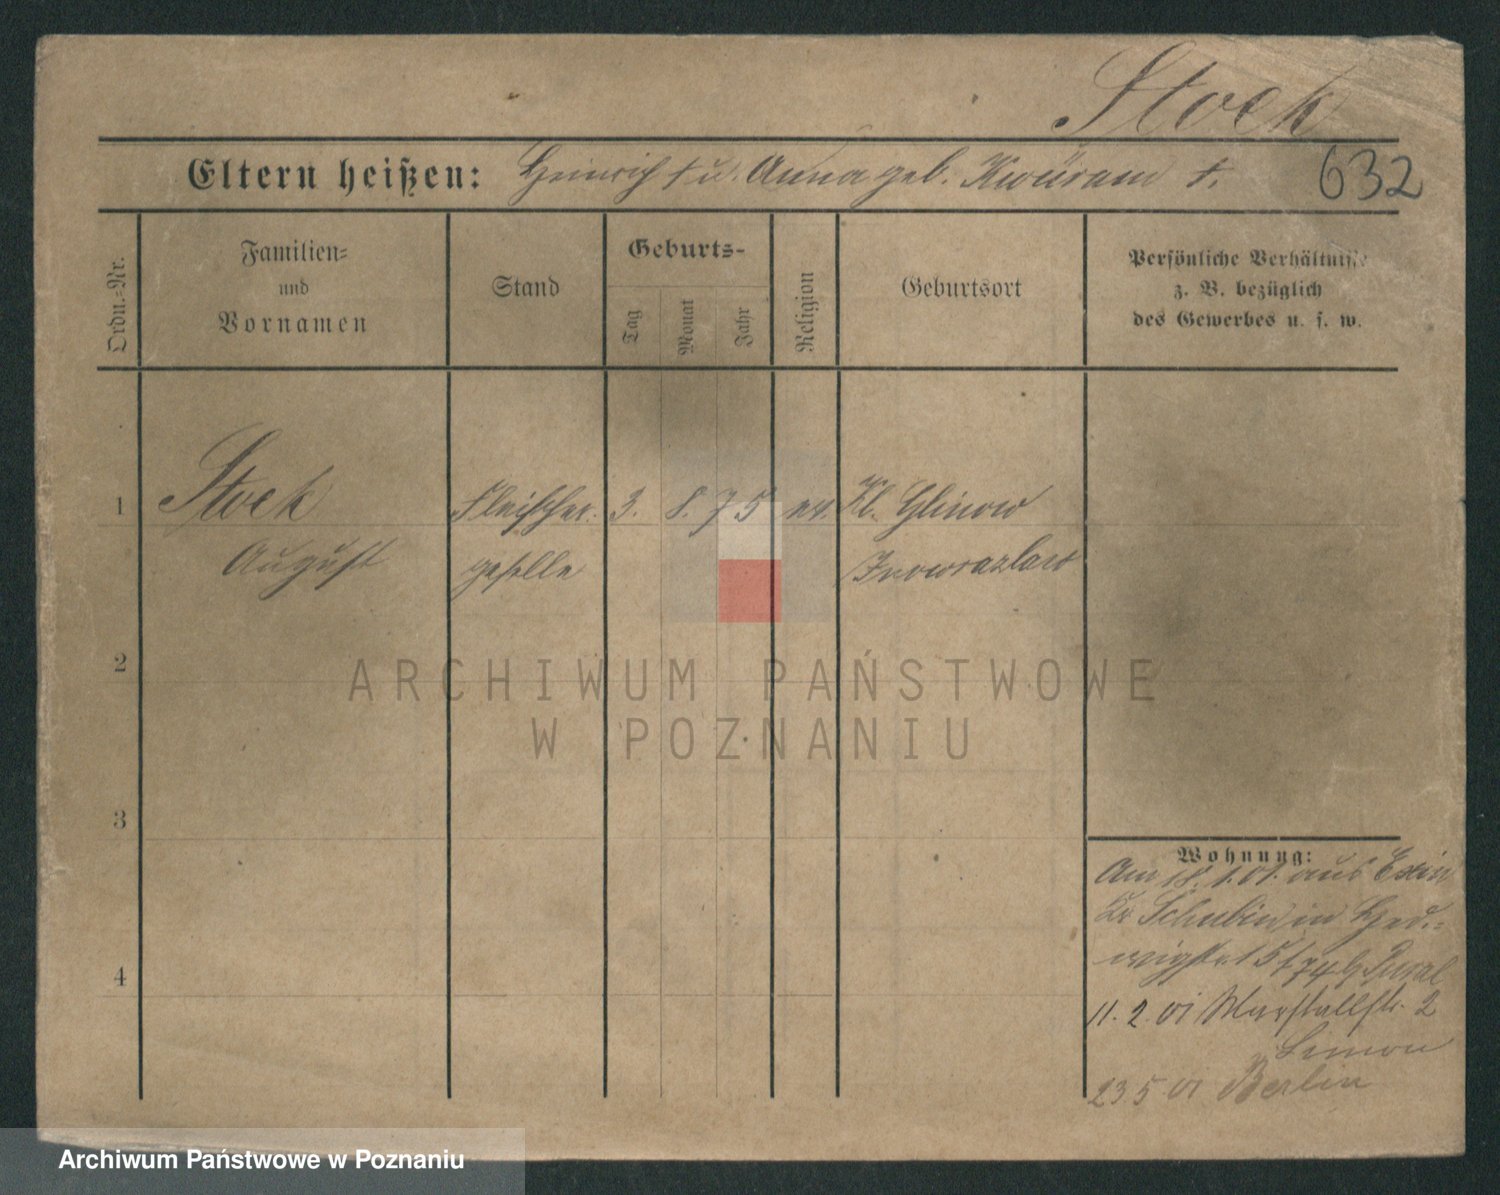 Stock
Eltern heißen: Heinrich † u. Anna geb. Kwüram †.
632
Ordn.=Nr.
Familien=
und
Vornamen
Stand
Geburts-
Tag
Monat
Jahr
Religion
Geburtsort
Persönliche Verhältnisse
z. B. bezüglich
des Gewerbes u. s. w.
1 Stock Fleischer- 3. 8. 75 ev. Kl. Glinow
August geselle Inowrazlaw
2
3
4
Wohnung:
Am 18.1.01. aus Exin
Kr Schubin in Hed-
wigstr. 15
11. 2. 01 Marstallstr. 2
Simon
23 5 01 Berlin
ARCHIWUM PAŃSTWOWE
W POZNANIU
Archiwum Państwowe w Poznaniu